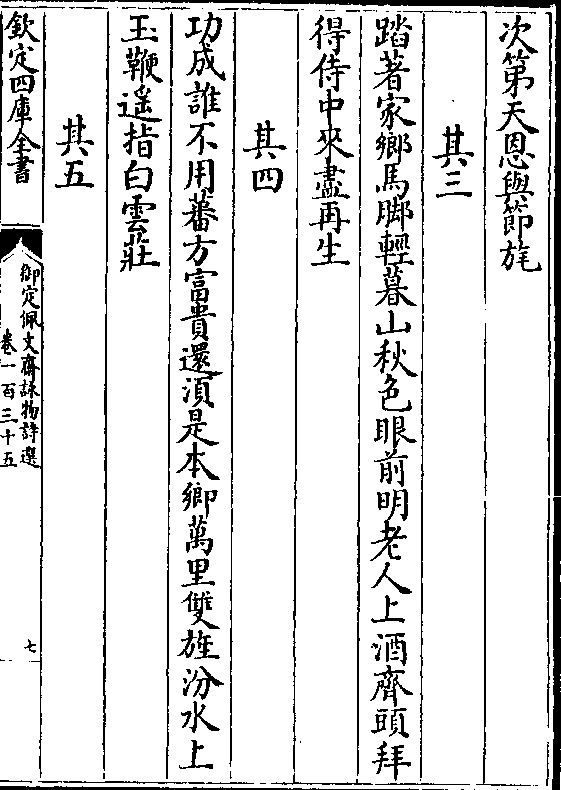 次第天恩與節旄
其三
踏著家鄉馬脚輕暮山秋色眼前明老人上酒齊頭拜
得侍中來盡再生
其四
功成誰不用蕃方富貴還須是本鄉萬里雙旌汾水上
玉鞭遥指白雲莊
其五
欽定四庫全書
御定佩文齋詠物詩選
卷一百三十五
七